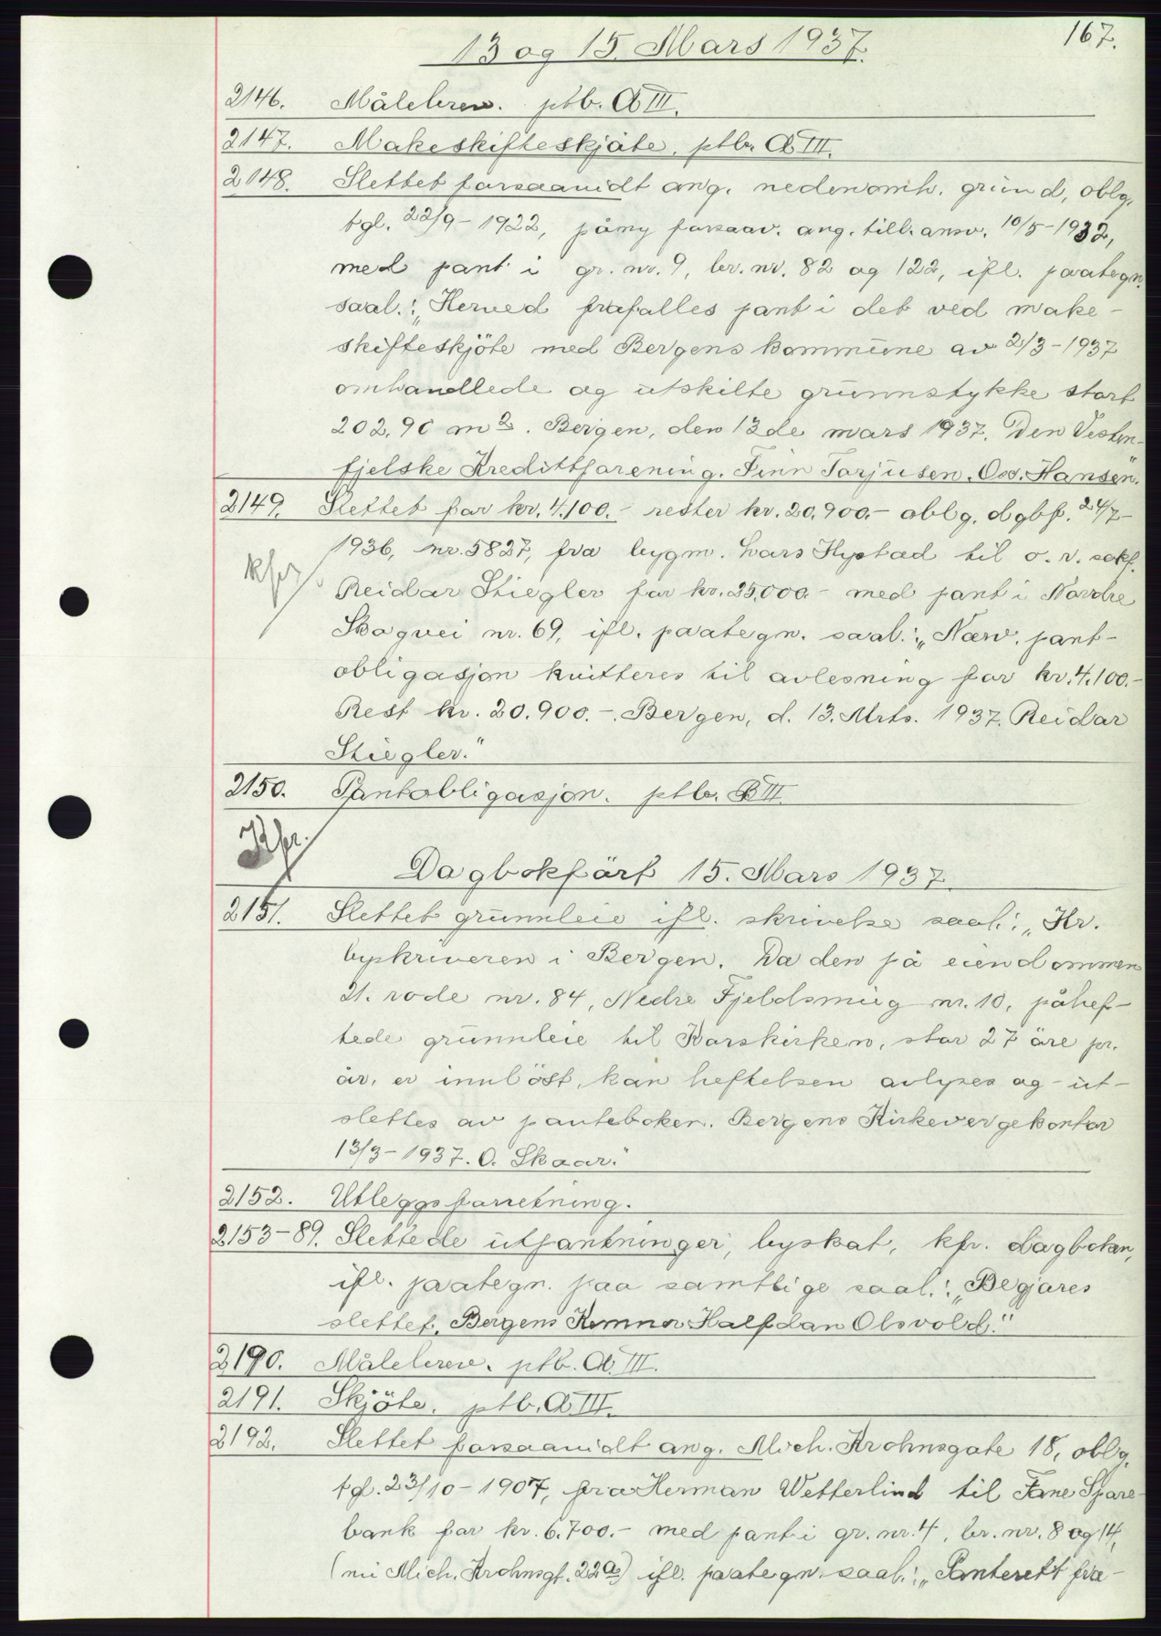 167.
13 og 15. Mars 1937.
2146. Målebrev. ptb. A III.
2147. Makeskifteskjöte. ptb. A III.
2148. Slettet forsaavidt ang. nedennevnte grund, oblg.
tgl. 22/9-1922, påny forsaav. ang. till. ansv. 10/5-1932,
med pant i gr. nr. 9, br. nr. 82 og 122, ifl. paategn.
saal.: „Herved frafalles pant i det ved make-
skifteskjöte med Bergens kommune av 2/3-1937
omhandlede og utskilte grunnstykke stort
202.90 m2. Bergen, den 13de mars 1937. Den Vesten-
fjelske Kredittforening. Finn Torjusen. Osv. Hansen".
2149. Slettet for kr. 4.100.- rester kr. 20.900.- oblg. dgbf. 24/7-
1936, nr. 5827, fra bygm. Lars Hystad til o. r. sakf.
kfr.
Reidar Stiegler for kr. 25.000.- med pant i Nordre
Skogvei nr. 69, ifl. paategn. saal.: „Nærv. pant-
obligasjon kvitteres til avlesning for kr. 4.100.-
Rest kr. 20.900.-. Bergen, d. 13. Mrts. 1937. Reidar
Stiegler."
2150. Pantobligasjon. ptb. B III
Kfr.
Dagbokfört 15. Mars 1937.
2151. Slettet grunnleie ifl. skrivelse saal.: „Hr.
byskriveren i Bergen. Da den på eiendommen
21. rode nr. 84, Nedre Fjeldsmug nr. 10, påhef-
tede grunnleie til Korskirken, stor 27 öre pr.
år, er innlöst, kan heftelsen avlyses og ut-
slettes av panteboken. Bergens Kirkevergekontor
13/3-1937. O. Skaar."
2152. Utleggsforretning.
2153-89. Slettede utpantninger, byskat, kfr. dagboken,
ifl. paategn. paa samtlige saal.: „Begjæres
slettet. Bergens Kemner Halfdan Olsvold."
2190. Målebrev. ptb. A III.
2191. Skjöte. ptb. A III.
2192. Slettet forsaavidt ang. Mich. Krohnsgate 18, oblg.
tgl. 23/10-1907, fra Herman Wetterlind til Fane Spare-
bank for kr. 6.700.- med pant i gr. nr. 4, br. nr. 8 og 14,
(nu Mich. Krohnsgt. 22a) ifl. paategn. saal.: „Panterett fra-